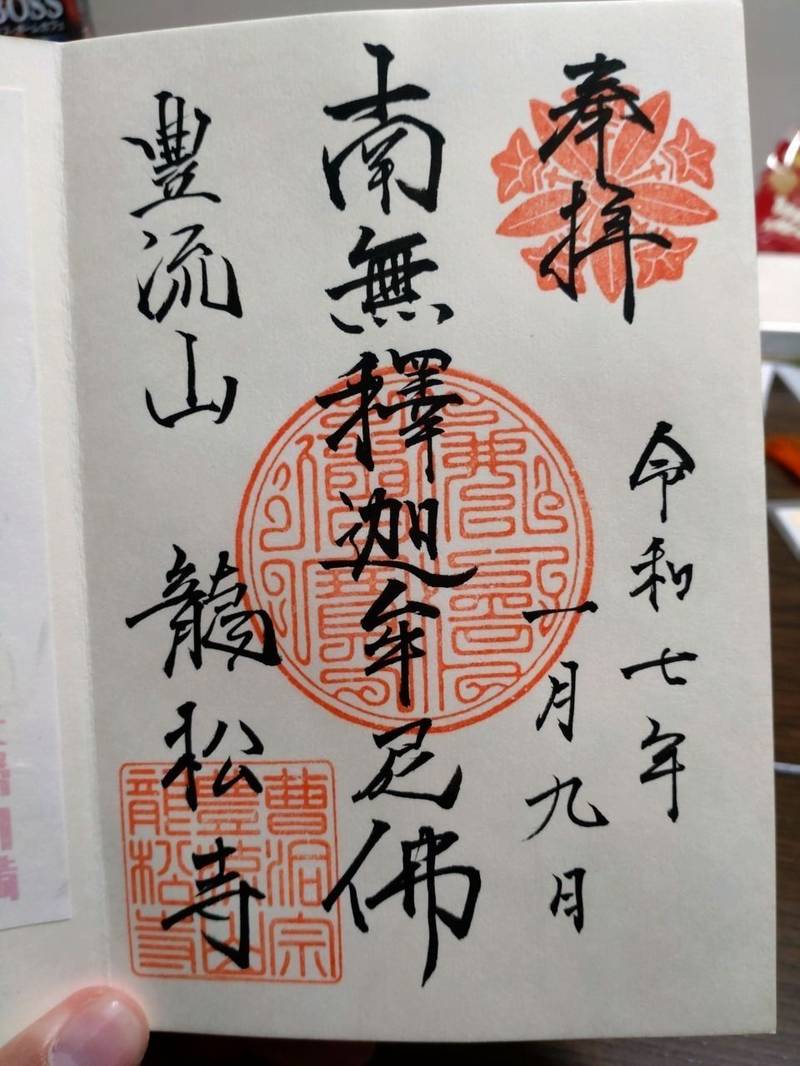 奉拝
令和七年
一月九日
南無釋迦牟尼佛
豊流山
龍松寺
曹洞宗
龍松寺
BOSS